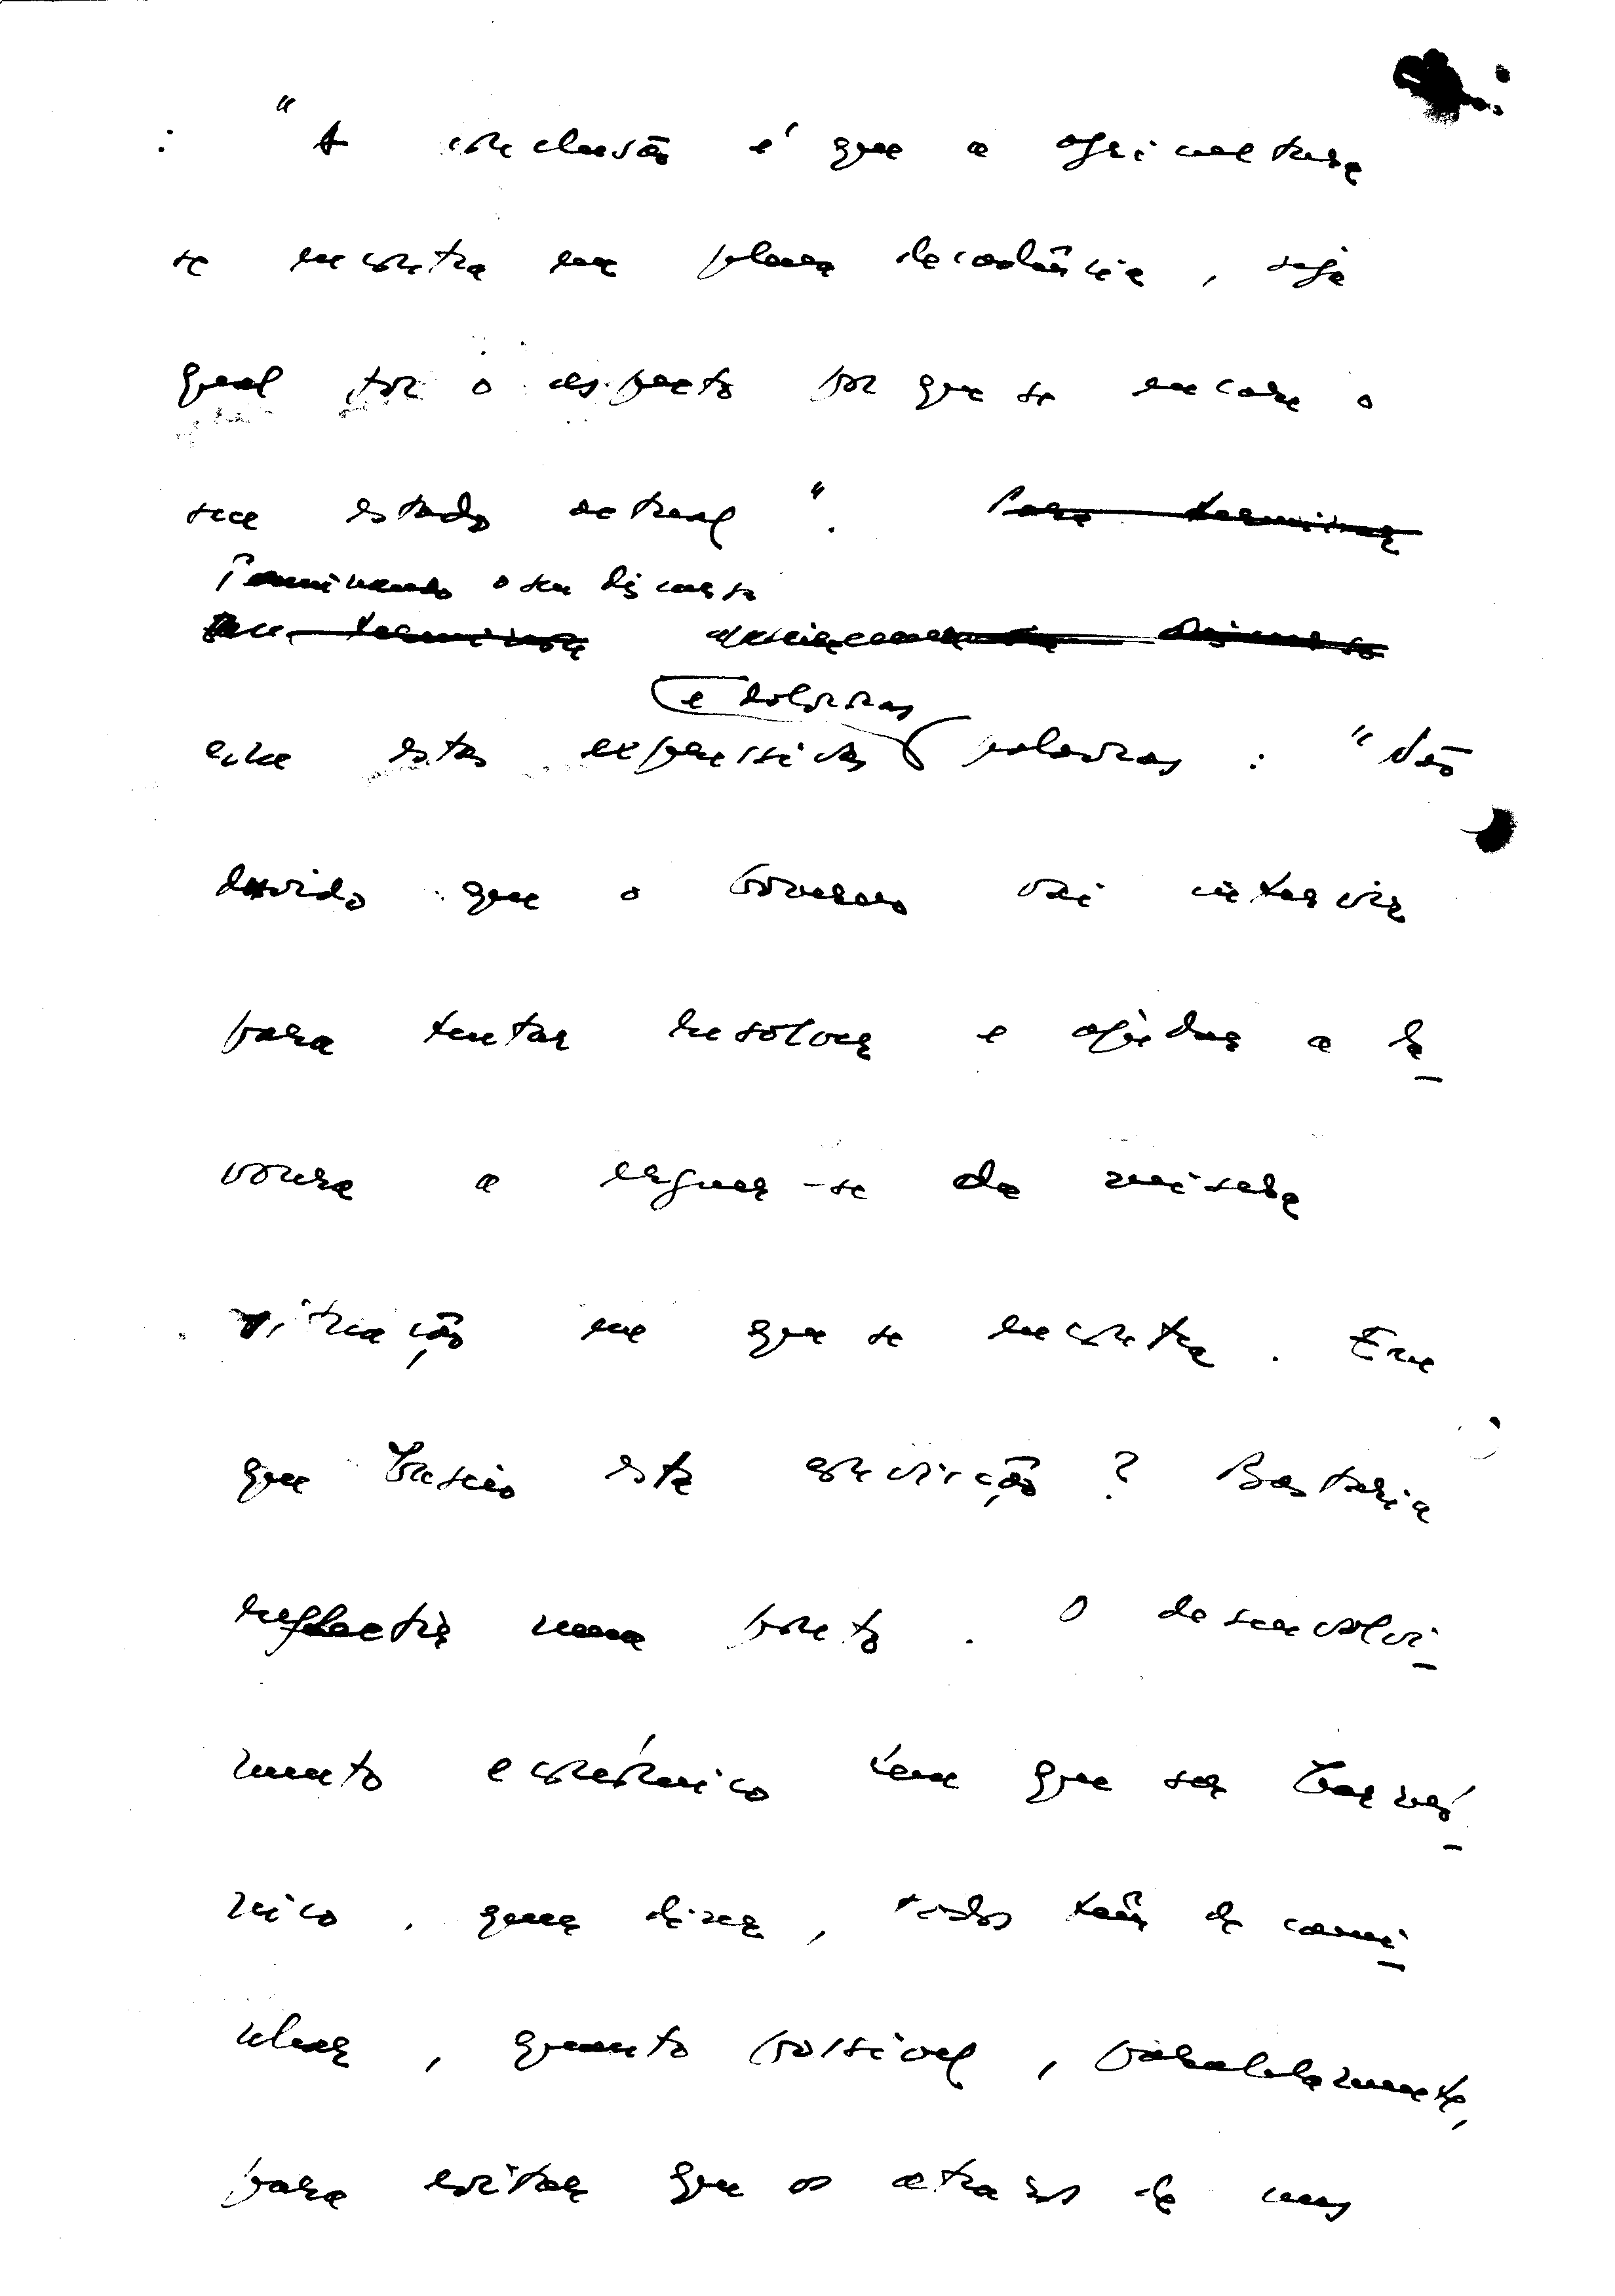 : "A conclusão é que a agricultura
se encontra em plena decadência, seja
qual for o aspecto por que se encare o
seu estado actual". Para terminar
Terminando o seu discurso
termina discurso
com estas expressivas palavras: "Não
e dolorosas
duvido que o Governo vai intervir
para tentar resolver e ajudar a la-
voura a erguer-se da mísera
situação em que se encontra. Em
que baseio esta convicção? Bastaria
reflectir num ponto. O desenvolvi-
mento económico tem que ser harmó-
nico, quer dizer, todos têm de cami-
nhar, quanto possível, paralelamente,
para evitar que os atrasos de uns